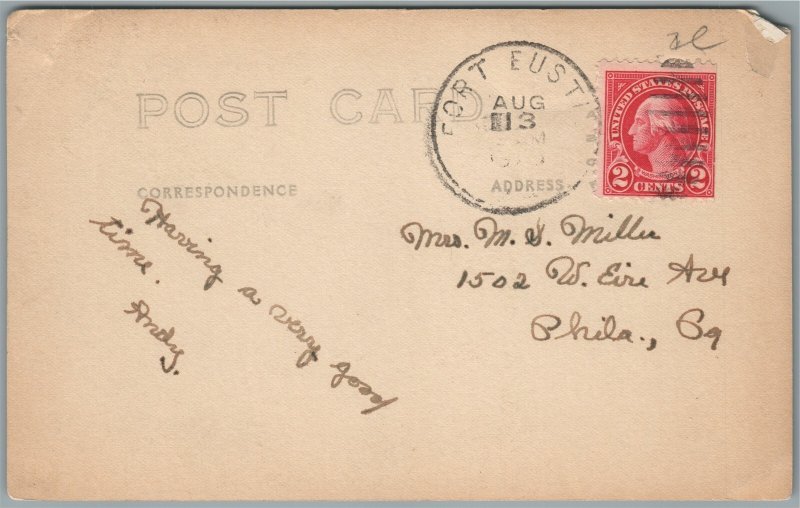 POST CARD
CORRESPONDENCE
ADDRESS
FORT EUSTI
AUG
13
M
UNITED STATES POSTAGE
2 CENTS 2
Having a very good
time.
Andy.
Mrs. M. S. Miller
1502 W. Eire Ave
Phila., Pa